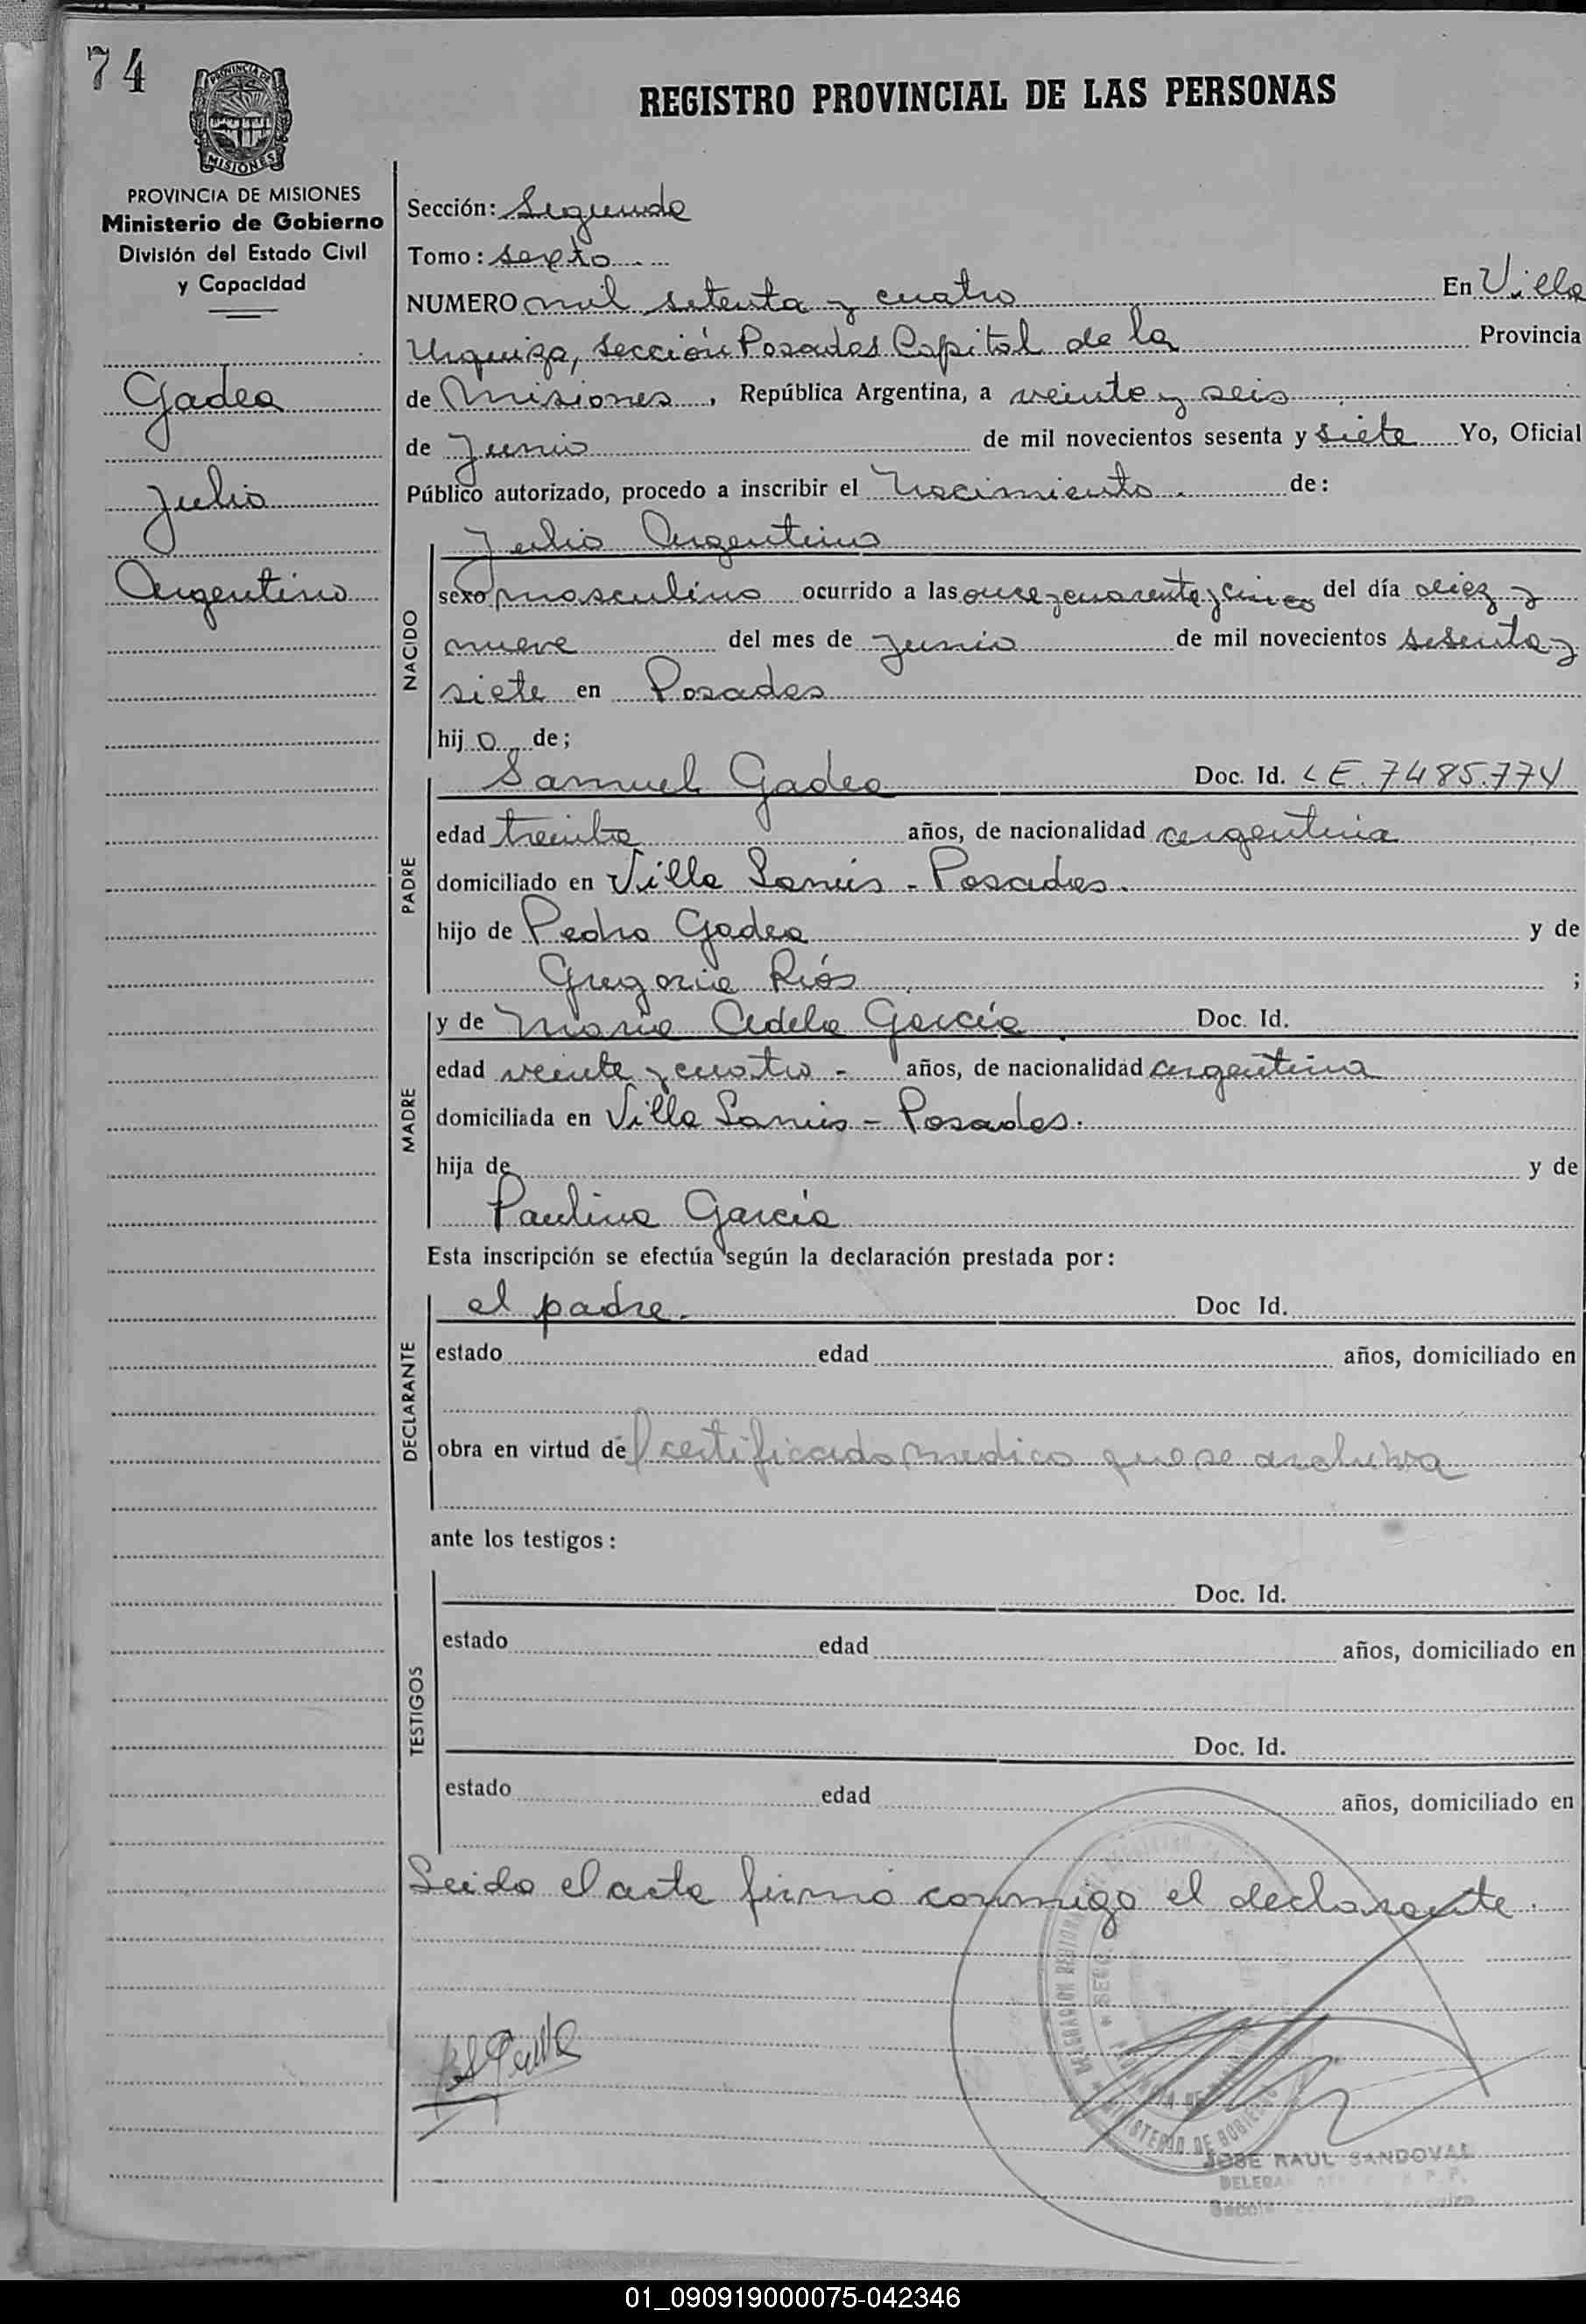 74
PROVINCIA DE
MISIONES
REGISTRO PROVINCIAL DE LAS PERSONAS
PROVINCIA DE MISIONES
Ministerio de Gobierno
División del Estado Civil
y Capacidad
Gadea
Julio
Argentino
Sección: Segunda
Tomo: sexto
NUMERO mil setenta y cuatro En Villa
Urquiza, sección Posadas Capital de la Provincia
de Misiones, República Argentina, a veinte y seis
de Junio de mil novecientos sesenta y siete Yo, Oficial
Público autorizado, procedo a inscribir el Nacimiento de:
NACIDO
Julio Argentino
sexo masculino ocurrido a las once y cuarenta y cinco del día diez y
nueve del mes de junio de mil novecientos sesenta y
siete en Posadas
hijo de;
PADRE
Samuel Gadea Doc. Id. LE. 7485.774
edad treinta años, de nacionalidad argentina
domiciliado en Villa Lanús - Posadas.
hijo de Pedro Gadea y de
Gregoria Riós ;
MADRE
y de María Adela García Doc. Id.
edad veinte y cuatro - años, de nacionalidad argentina
domiciliada en Villa Lanús - Posadas.
hija de y de
Paulina García
Esta inscripción se efectúa según la declaración prestada por:
DECLARANTE
el padre. Doc Id.
estado edad años, domiciliado en
obra en virtud del certificado medico que se archiva
ante los testigos:
TESTIGOS
Doc. Id.
estado edad años, domiciliado en
Doc. Id.
estado edad años, domiciliado en
Leido el acta firmó conmigo el declarante.
MINISTERIO DE GOBIERNO
JOSE RAUL SANDOVAL
01_090919000075-042346